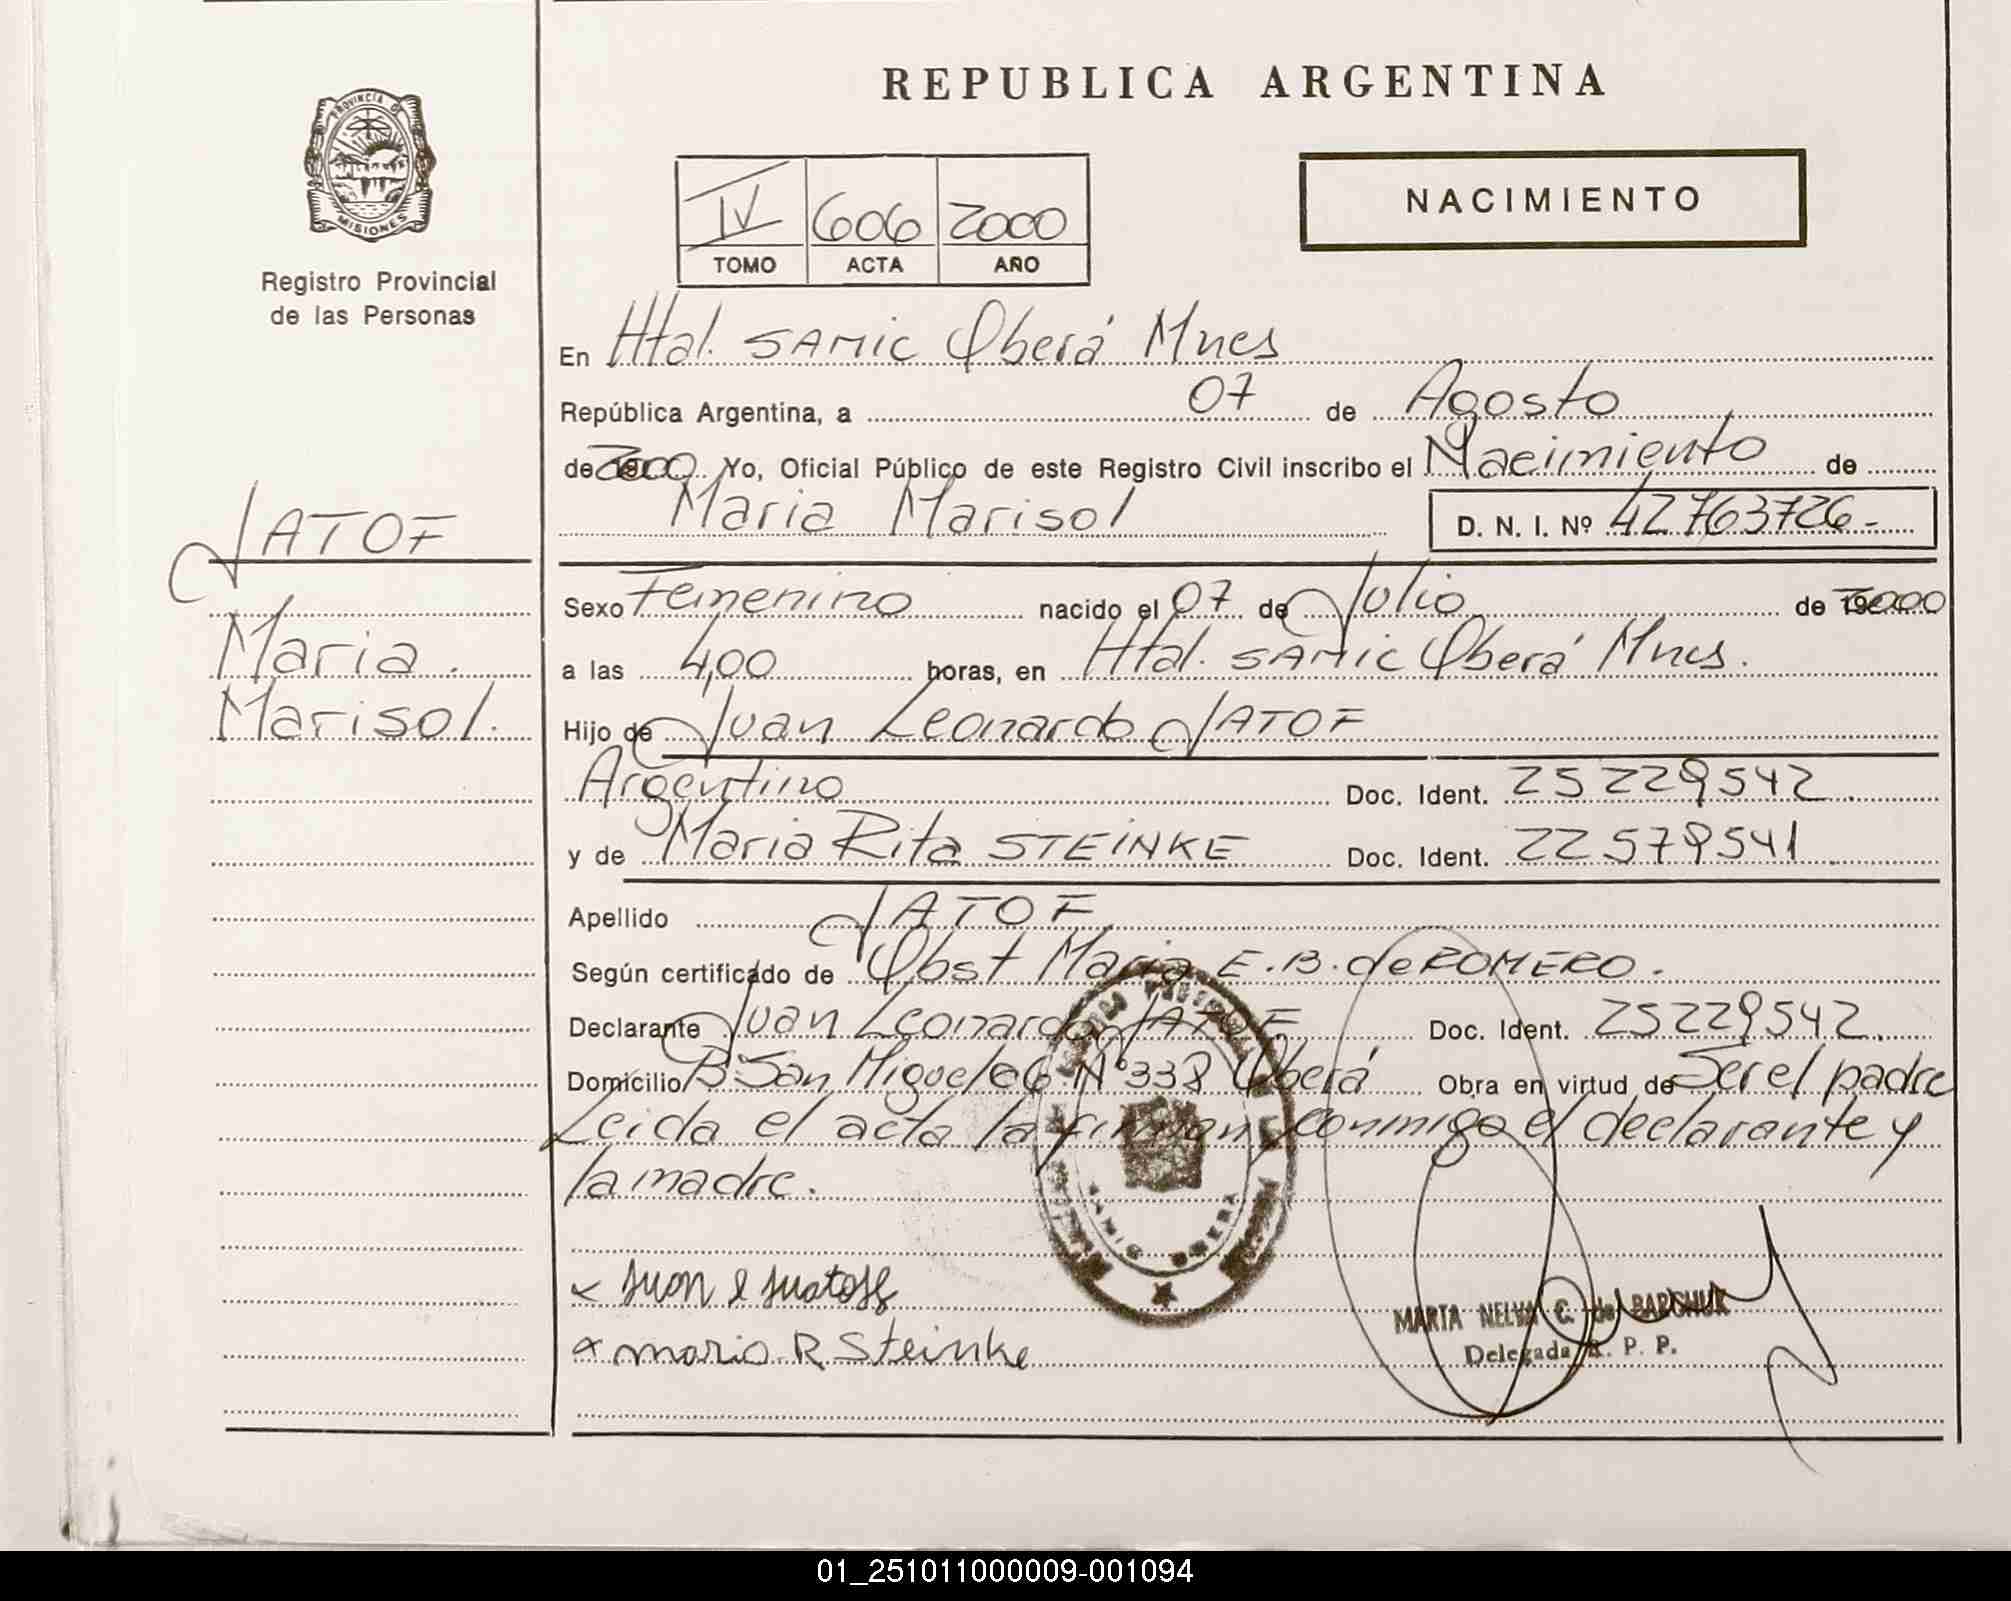 REPUBLICA ARGENTINA
PROVINCIA D
MISIONES
Registro Provincial
de las Personas
NACIMIENTO
IV 606 2000
TOMO ACTA AÑO
En Htal. SAMIC Oberá Mnes
República Argentina, a 07 de Agosto
de 2000 Yo, Oficial Público de este Registro Civil inscribo el Nacimiento de
Maria Marisol D. N. I. Nº 42763726-
JATOF
Maria
Marisol.
Sexo Femenino nacido el 07 de Julio de 2000
a las 4,00 horas, en Htal. SAMIC Oberá Mnes.
Hijo de Juan Leonardo JATOF
Argentino Doc. Ident. 25229542
y de Maria Rita STEINKE Doc. Ident. 22579541
Apellido JATOF
Según certificado de Obst Maria E.B. de ROMERO.
Declarante Juan Leonardo JATOF Doc. Ident. 25229542
Domicilio Bº San Miguel N° 338 Oberá Obra en virtud de Ser el padre
Leida el acta la firman conmigo el declarante y
la madre.
SAMIC OBERA
x Juan
x maria R Steinke
MARTA NELVA C. de BARCHUK
Delegada R. P. P.
01_251011000009-001094